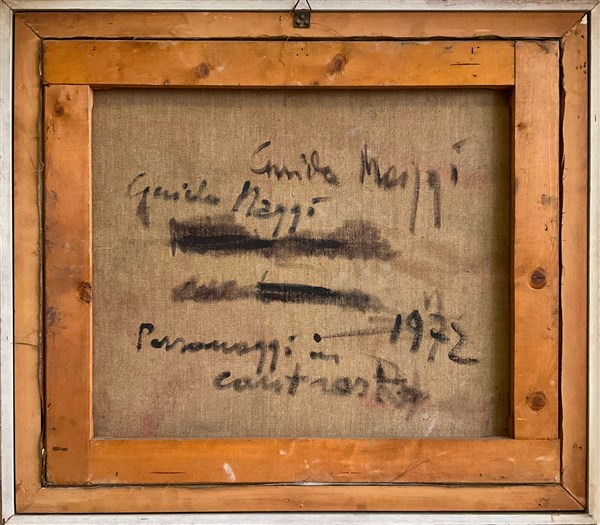 Guido Maggi
Guido Maggi
1972
Personaggi in
contrasto